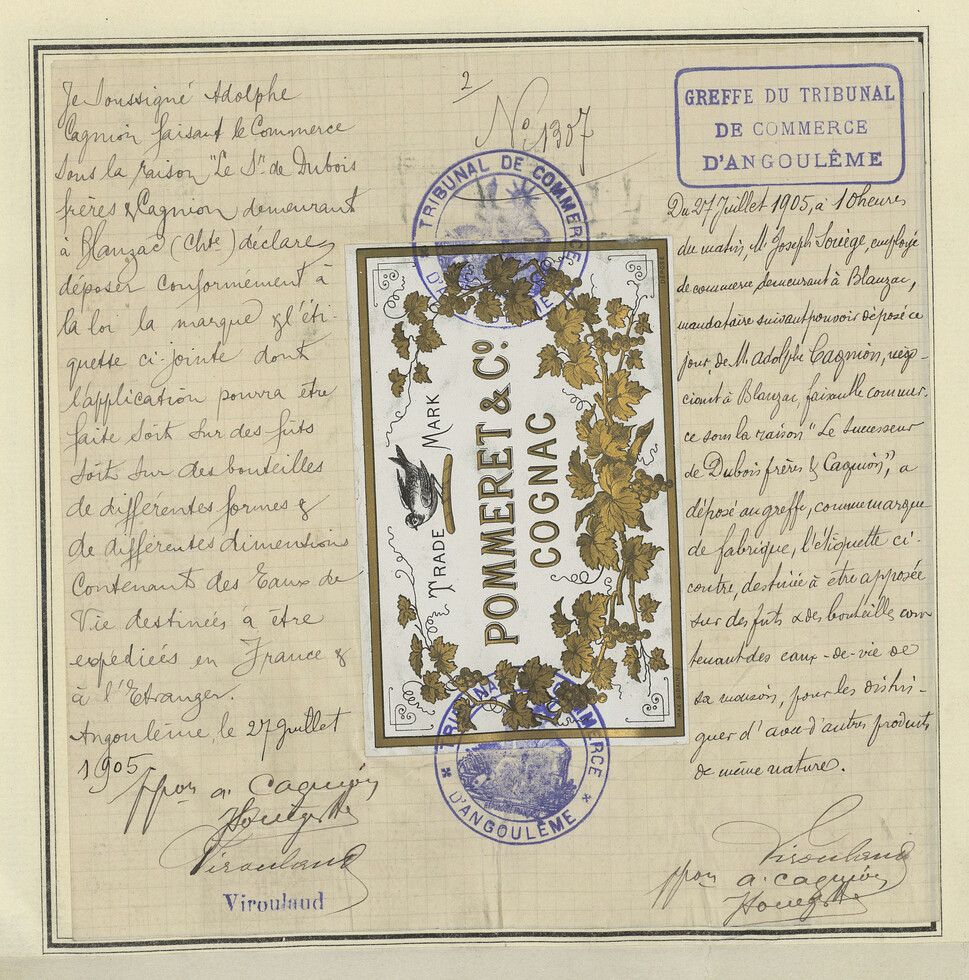 2
No 1307
Je Soussigné Adolphe
Cagnion faisant le Commerce
Sous la raison "Le Sr. de Dubois
frères & Cagnion demeurant
à Blanzac (Chte) déclare
déposer conformément à
la loi la marque & l'éti-
quette ci-jointe dont
l'application pourra être
faite soit sur des fûts
soit sur des bouteilles
de différentes formes &
de différentes dimensions
Contenant des Eaux de
Vie destinées à être
expediées en France &
à l'Etranger.
Angoulême, le 27 Juillet
1905
ppon a. Cagnion
Virouland
Virouland
TRIBUNAL DE COMMERCE
D'ANGOULÊME
TRADE MARK
POMMERET & Co.
COGNAC
TRIBUNAL DE COMMERCE
D'ANGOULÊME
RÉPUBLIQUE FRANÇAISE
GREFFE DU TRIBUNAL
DE COMMERCE
D'ANGOULÊME
Du 27 Juillet 1905, à 10 heures
du matin, M. Joseph Souège, employé
de commerce demeurant à Blanzac,
mandataire suivant pouvoir déposé ce
jour, de M. Adolphe Cagnion, négo-
ciant à Blanzac, faisant le commer-
ce sous la raison "Le Successeur
de Dubois frères & Cagnion", a
déposé au greffe, comme marque
de fabrique, l'étiquette ci-
contre, destinée à être apposée
sur des fûts & des bouteilles con-
tenant des eaux-de-vie de
sa maison, pour les distin-
guer d'avec d'autres produits
de même nature.
Virouland
ppon a. Cagnion